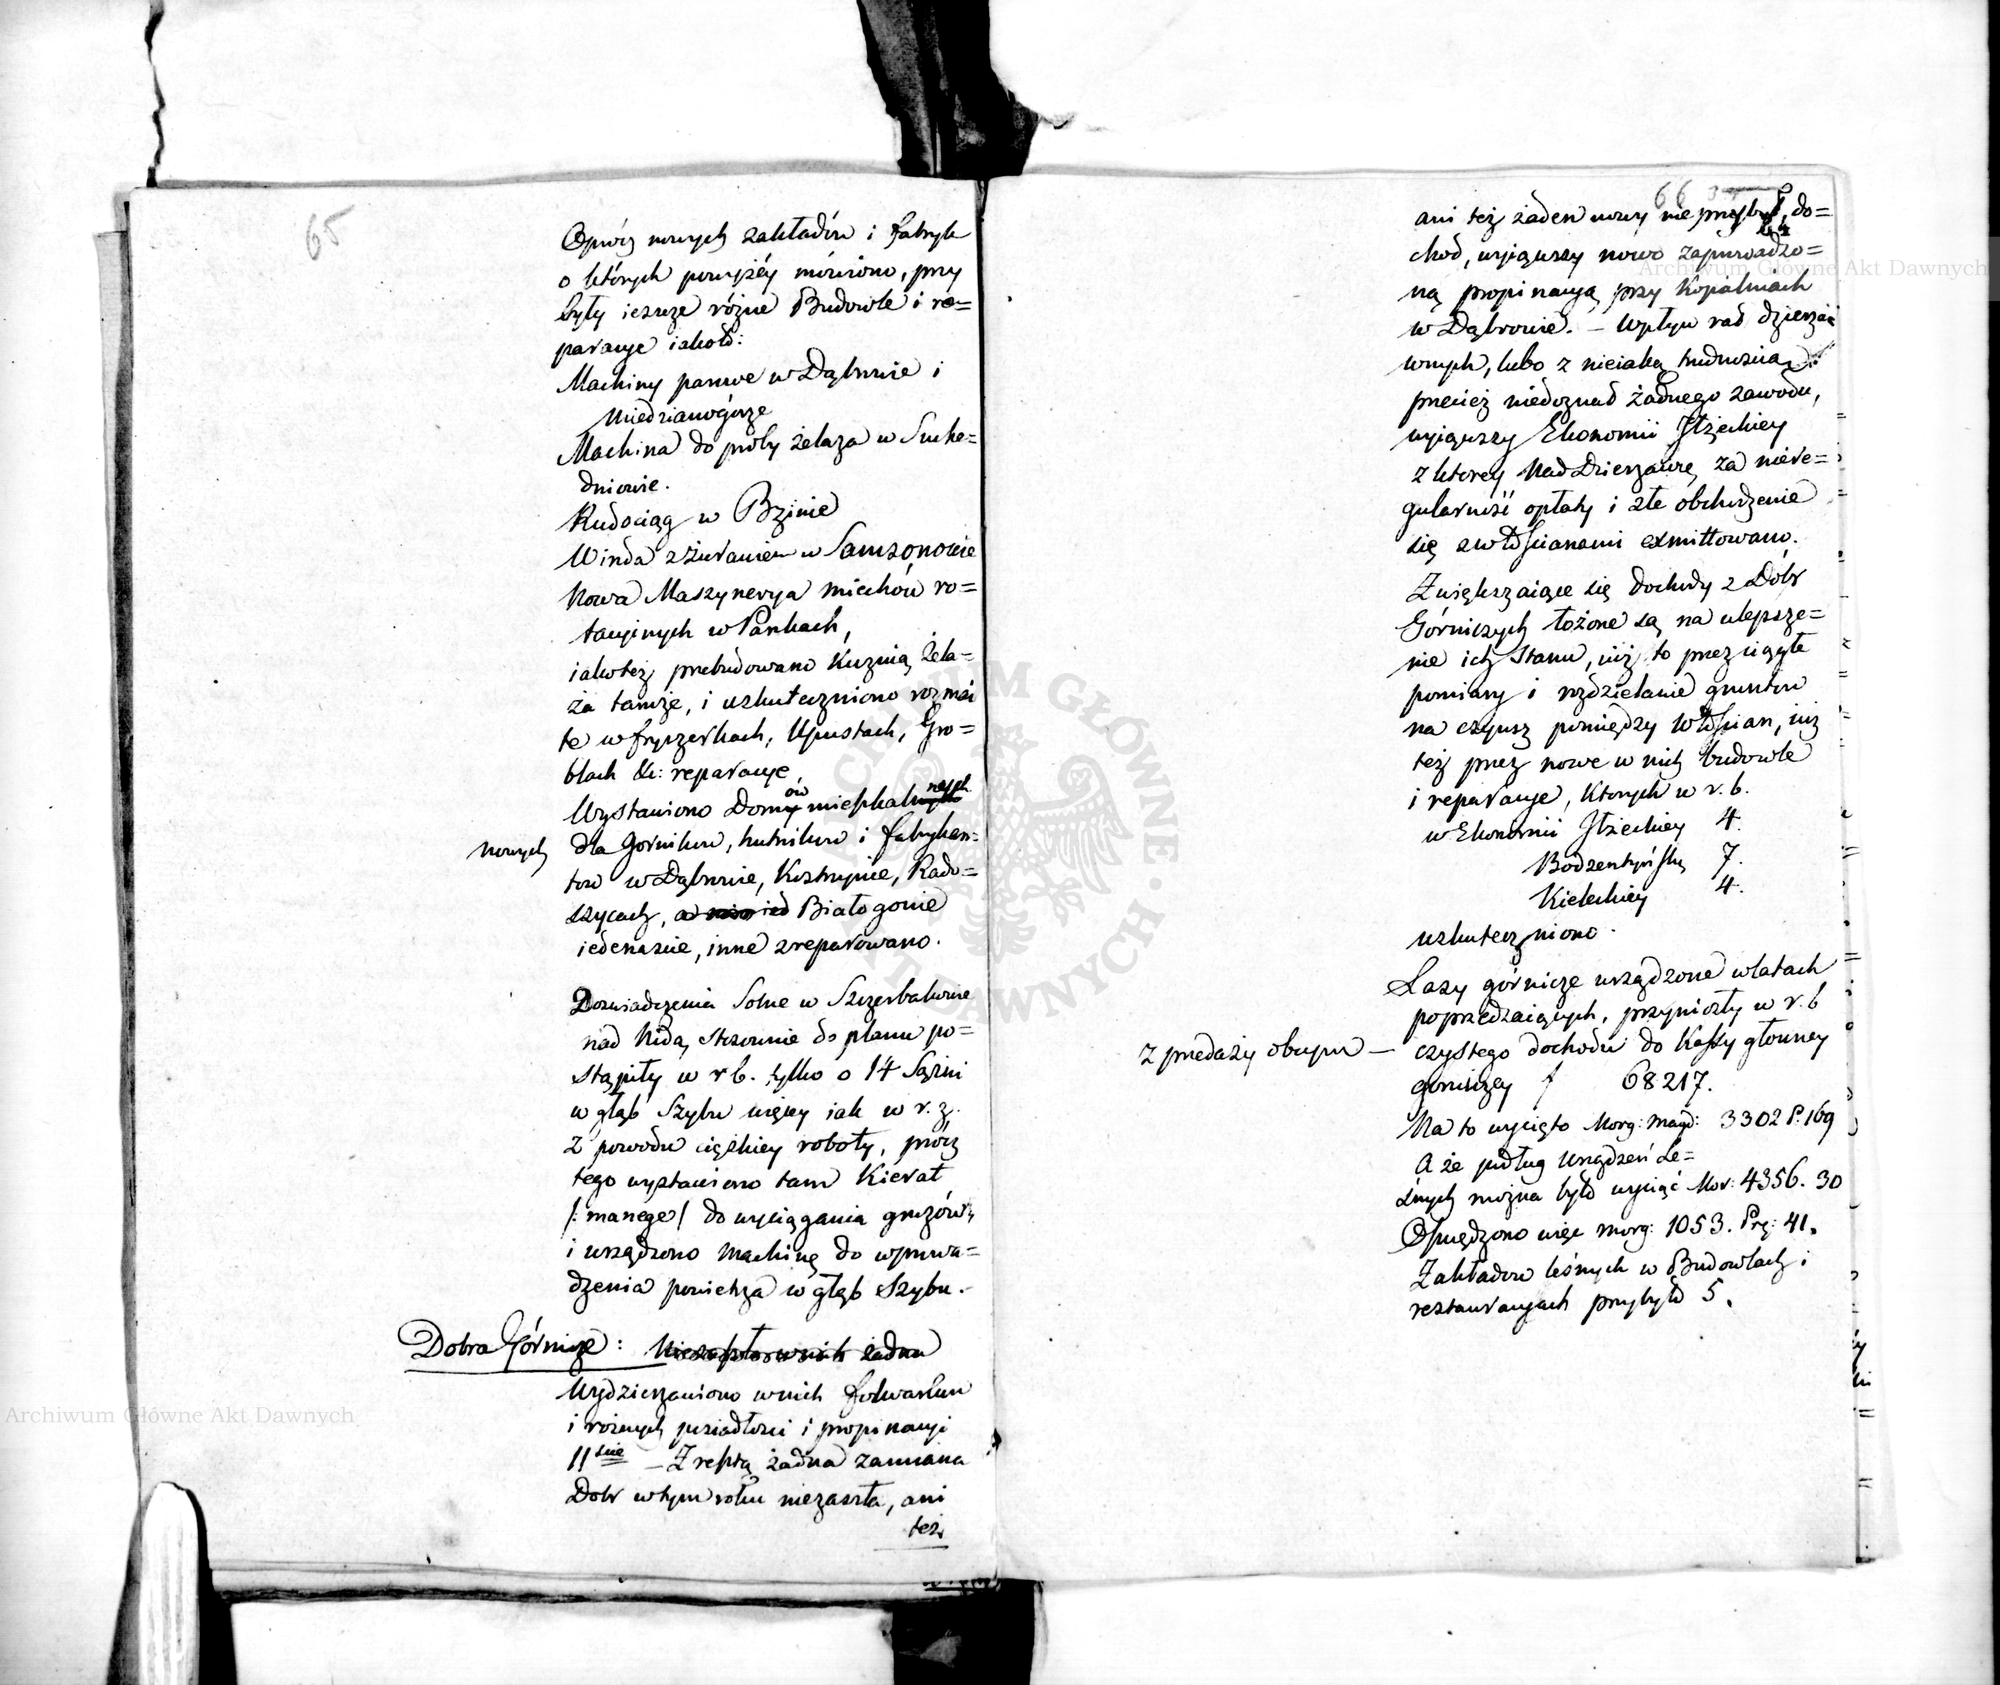 65
Oprócz nowych zakładów i fabryk
o których powyżéy mówiono, przy
były ieszcze różne Budowle i re=
paracye iakoto:
Machiny parowe w Dąbrowie i
Miedzianogórze
Machina do próby żelaza w Suche=
dniowie.
Rudociąg w Bzinie
Winda z żurawiem w Samsonowie
Nowa Maszynerya miechów ro=
tacyinych w Pankach,
iakoteż przebudowano Kuznią Żela=
za tamże, i uskuteczniono rozmai
te w fryszerkach, Upustach, Gro=
blach &c: reparacye,
Wystawiono Domów mieszkalnych
nowych dla Górników, hutników i fabrykan=
tow w Dąbrowie, Kostrzynie, Rado=
szycach, Białogonie
iedenaście, inne zreparowano.
Doswiadczenia Solne w Szczerbakowie
nad Nidą, stosownie do planu po=
stąpiły w r b. tylko o 14 Sążni
w głąb Szybu więcey iak w r. z.
Z powodu ciężkiey roboty, prócz
tego wystawiono tam Kierat
/: manege/ do wyciągania gruzów,
i urządzono Machinę do wprowa=
dzenia powietrza w głąb Szybu.
Dobra Górnicze: żadna
Wydzierzawiono w nich folwarkow
i roźnych posiadłości i propinacyi
11ście – Zresztą żadna zamiana
Dobr w tym roku niezaszła, ani
też
66
ani też żaden nowy nie przybył do=
chod, wyiąwszy nowo zaprowadzo=
ną propinacyą przy Kopalniach
w Dąbrowie. – Wpływ rad dzierża
wnych, lubo z nieiaką trudnością
przecież niedoznał żadnego zawodu,
wyiąwszy Ekonomii Jłżeckiey
z ktorey Nad Dzierzawcę za niere=
gularność opłaty i złe obchodzenie
się z włościanami exmittowano.
Zwiększaiące się dochody z Dóbr
Górniczych łożone są na ulepsze=
nie ich Stanu, iuż to przez ciągłe
pomiary i rozdzielanie gruntow
na czynsz pomiędzy Włościan, iuż
też przez nowe w nich budowle
i reparacye, Ktorych w r. b.
w Ekonomii Jłżeckiey 4.
Bodzentyńskiey 7.
Kieleckiey 4.
uskuteczniono.
Lasy górnicze urządzone w latach
poprzedzaiących, przyniosły w r. b
z przedaży czystego dochodu do Kassy głowney
gorniczey f 68217.
Na to wycięto Morg: magd: 3302 P. 169
A że podług Urządzeń Le=
śnych można było wyciąć Mor: 4356. 30
Oszczędzono więc morg: 1053. Prę: 41.
Zakładow leśnych w Budowlach i
restauracyach przybyło 5.